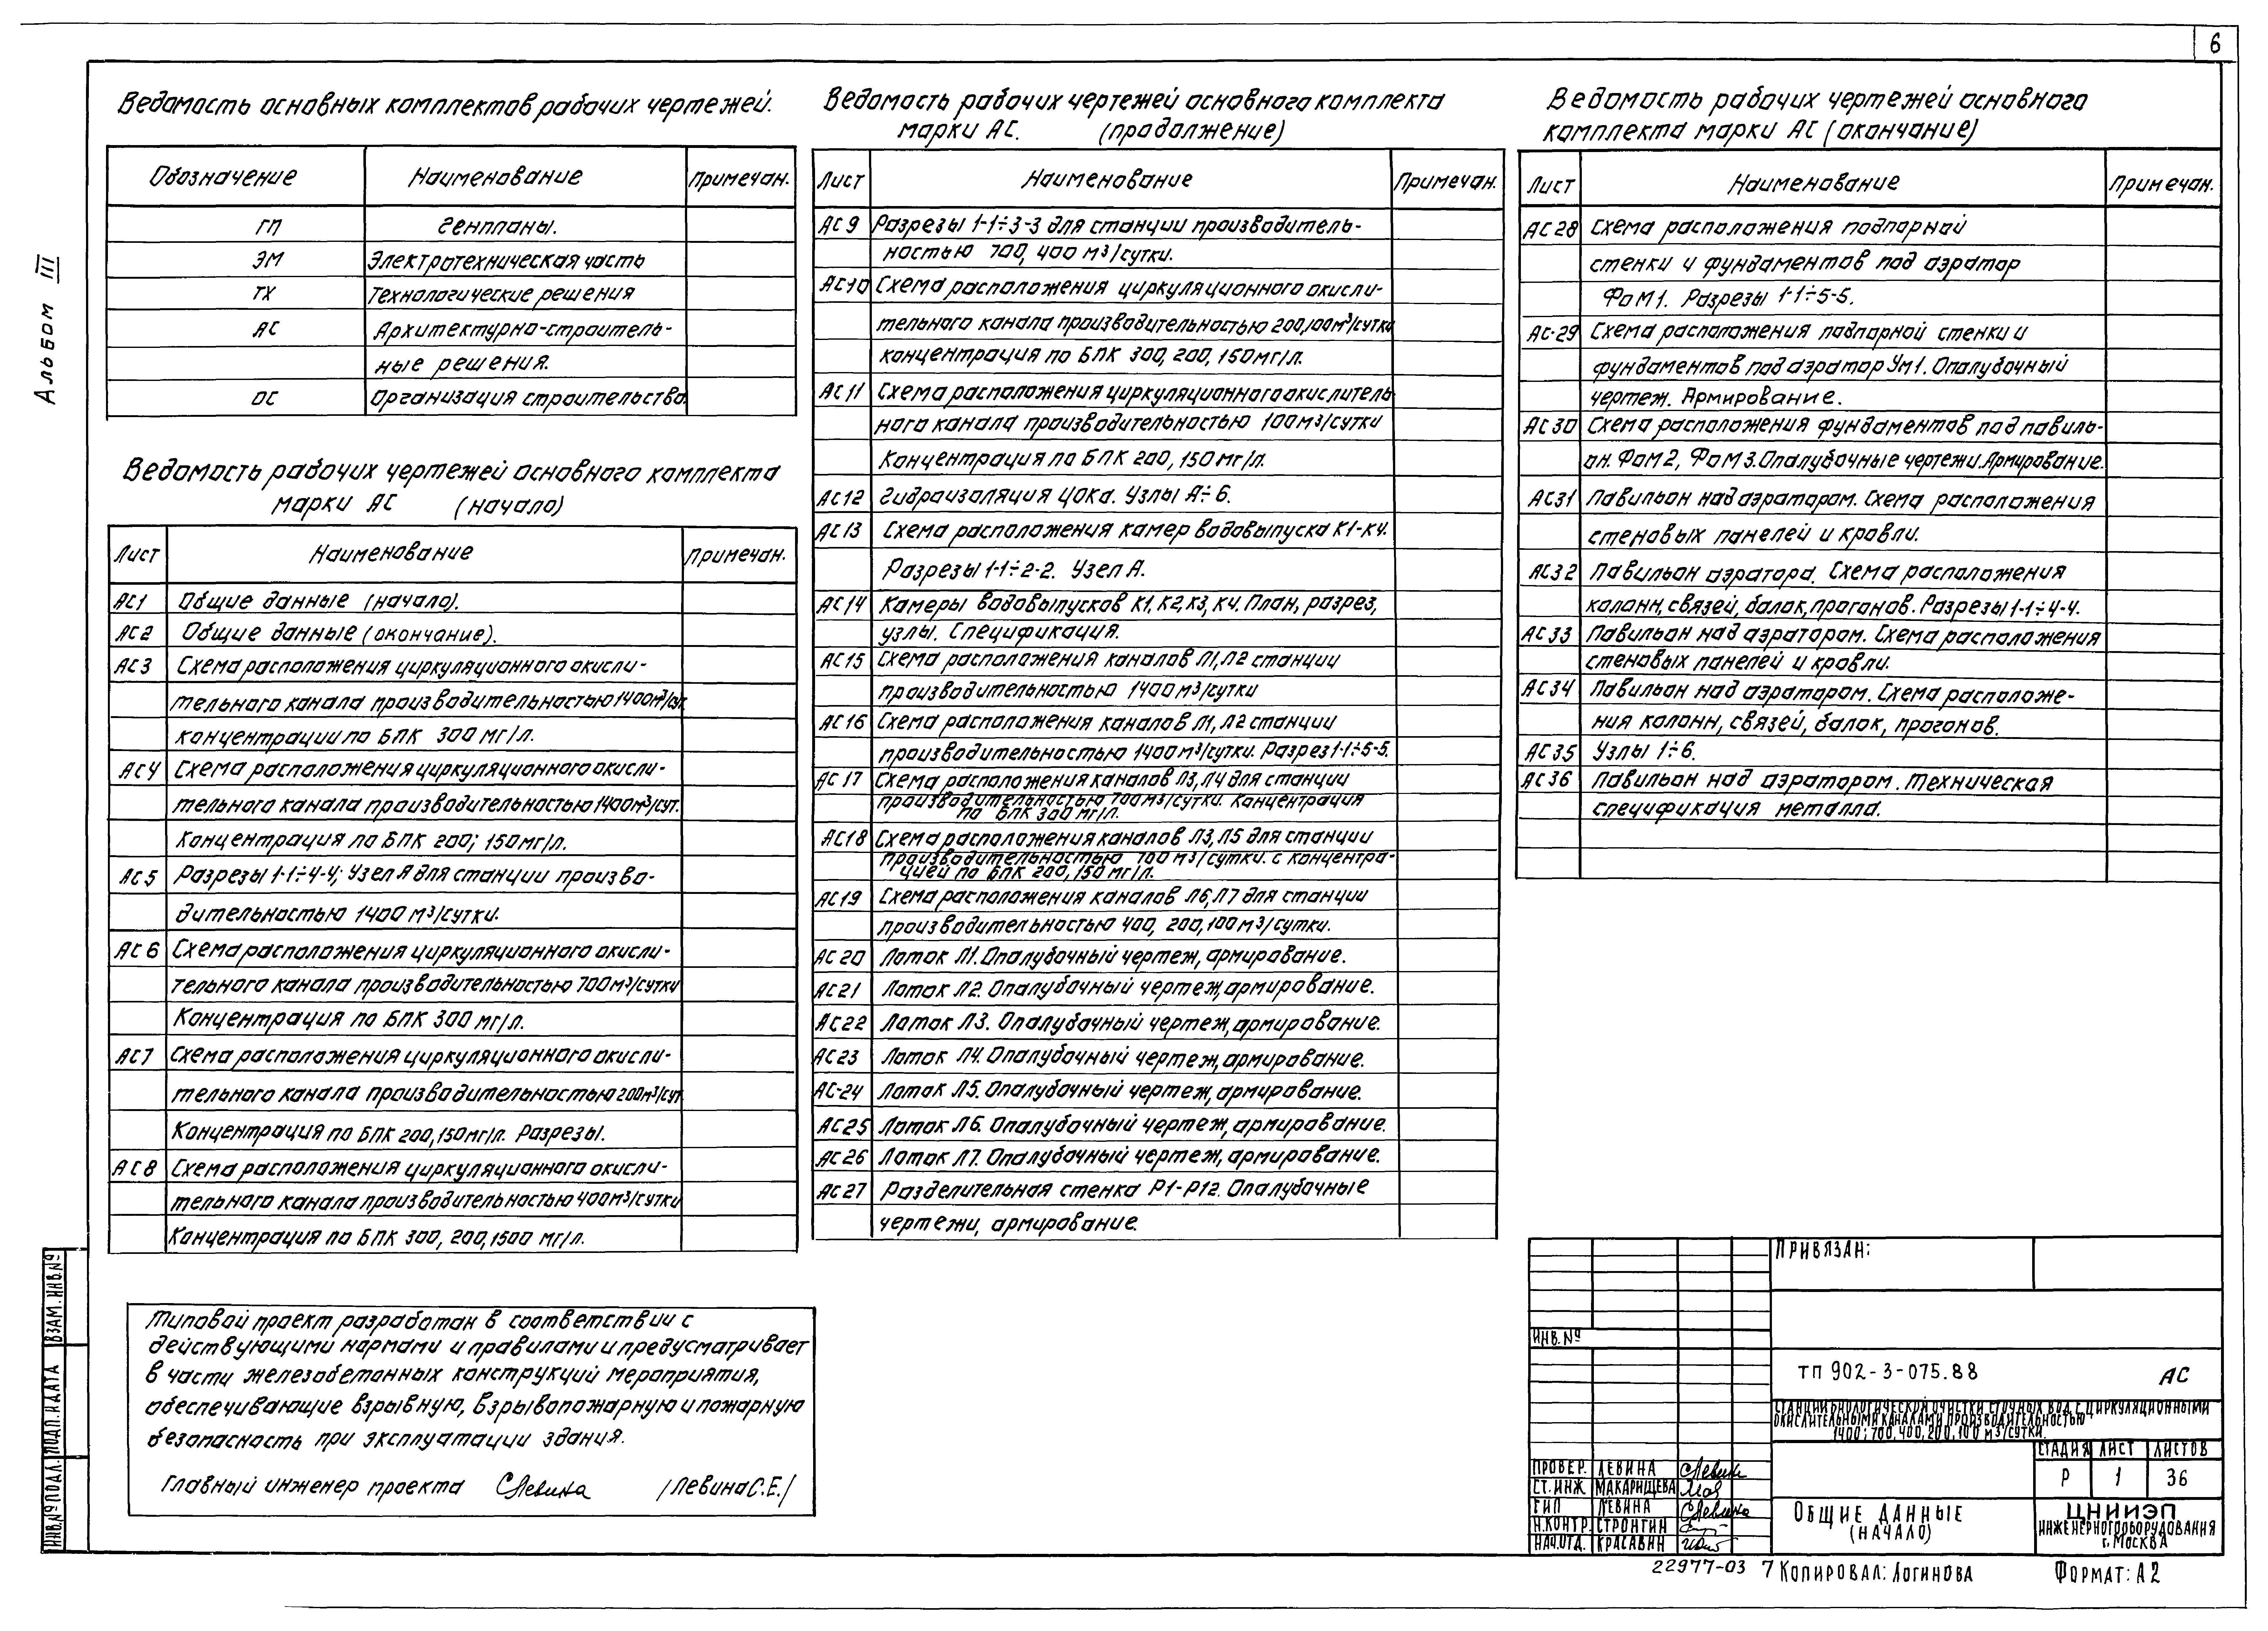 6
Альбом III
Ведомость основных комплектов рабочих чертежей.
Обозначение Наименование Примечан.
ГП Генпланы.
ЭМ Электротехническая часть
ТХ Технологические решения
АС Архитектурно-строитель-
ные решения.
ОС Организация строительства
Ведомость рабочих чертежей основного комплекта
марки АС (начало)
Лист Наименование Примечан.
АС1 Общие данные (начало).
АС2 Общие данные (окончание).
АС3 Схема расположения циркуляционного окисли-
тельного канала производительностью 1400м³/сут.
концентрации по БПК 300 мг/л.
АС4 Схема расположения циркуляционного окисли-
тельного канала производительностью 1400м³/сут.
Концентрация по БПК 200; 150мг/л.
АС5 Разрезы 1-1÷4-4; Узел А для станции произво-
дительностью 1400 м³/сутки.
АС6 Схема расположения циркуляционного окисли-
тельного канала производительностью 700м³/сутки
Концентрация по БПК 300 мг/л.
АС7 Схема расположения циркуляционного окисли-
тельного канала производительностью 200м³/сут.
Концентрация по БПК 200, 150мг/л. Разрезы.
АС8 Схема расположения циркуляционного окисли-
тельного канала производительностью 400м³/сутки
Концентрация по БПК 300, 200, 1500 мг/л.
Ведомость рабочих чертежей основного комплекта
марки АС. (продолжение)
Лист Наименование Примечан.
АС9 Разрезы 1-1÷3-3 для станции производитель-
ностью 700, 400 м³/сутки.
АС10 Схема расположения циркуляционного окисли-
тельного канала производительностью 200, 100м³/сутки
концентрация по БПК 300, 200, 150мг/л.
АС11 Схема расположения циркуляционного окислитель
ного канала производительностью 100м³/сутки
Концентрация по БПК 200, 150 мг/л.
АС12 Гидроизоляция ЦОКа. Узлы А÷Б.
АС13 Схема расположения камер водовыпуска К1-К4.
Разрезы 1-1÷2-2. Узел А.
АС14 Камеры водовыпусков К1, К2, К3, К4. План, разрез,
узлы. Спецификация.
АС15 Схема расположения каналов Л1, Л2 станции
производительностью 1400 м³/сутки
АС16 Схема расположения каналов Л1, Л2 станции
производительностью 1400м³/сутки. Разрез 1-1÷5-5.
АС17 Схема расположения каналов Л3, Л4 для станции
производительностью 700м³/сутки. Концентрация
по БПК 300 мг/л.
АС18 Схема расположения каналов Л3, Л5 для станции
производительностью 700 м³/сутки. с концентра-
цией по БПК 200, 150 мг/л.
АС19 Схема расположения каналов Л6, Л7 для станции
производительностью 400, 200, 100 м³/сутки.
АС20 Лоток Л1. Опалубочный чертеж, армирование.
АС21 Лоток Л2. Опалубочный чертеж, армирование.
АС22 Лоток Л3. Опалубочный чертеж, армирование.
АС23 Лоток Л4. Опалубочный чертеж, армирование.
АС-24 Лоток Л5. Опалубочный чертеж, армирование.
АС25 Лоток Л6. Опалубочный чертеж, армирование.
АС26 Лоток Л7. Опалубочный чертеж, армирование.
АС27 Разделительная стенка Р1-Р12. Опалубочные
чертежи, армирование.
Ведомость рабочих чертежей основного
комплекта марки АС (окончание)
Лист Наименование Примечан.
АС28 Схема расположения подпорной
стенки и фундаментов под аэратор
ФоМ1. Разрезы 1-1÷5-5.
АС-29 Схема расположения подпорной стенки и
фундаментов под аэратор Ум1. Опалубочный
чертеж. Армирование.
АС30 Схема расположения фундаментов под павиль-
он. ФоМ2, ФоМ3. Опалубочные чертежи. Армирование.
АС31 Павильон над аэратором. Схема расположения
стеновых панелей и кровли.
АС32 Павильон аэратора. Схема расположения
колонн, связей, балок, прогонов. Разрезы 1-1÷4-4.
АС33 Павильон над аэратором. Схема расположения
стеновых панелей и кровли.
АС34 Павильон над аэратором. Схема расположе-
ния колонн, связей, балок, прогонов.
АС35 Узлы 1÷6.
АС36 Павильон над аэратором. Техническая
спецификация металла.
Типовой проект разработан в соответствии с
действующими нормами и правилами и предусматривает
в части железобетонных конструкций мероприятия,
обеспечивающие взрывную, взрывопожарную и пожарную
безопасность при эксплуатации здания.
Главный инженер проекта СЛевина /Левина С.Е./
ИНВ.№ПОДЛ. ПОДП.И ДАТА ВЗАМ.ИНВ.№
ПРИВЯЗАН:
ИНВ.№
ТП 902-3-075.88 АС
СТАНЦИИ БИОЛОГИЧЕСКОЙ ОЧИСТКИ СТОЧНЫХ ВОД С ЦИРКУЛЯЦИОННЫМИ
ОКИСЛИТЕЛЬНЫМИ КАНАЛАМИ ПРОИЗВОДИТЕЛЬНОСТЬЮ
1400; 700, 400, 200, 100 м³/СУТКИ.
СТАДИЯ ЛИСТ ЛИСТОВ
Р 1 36
ПРОВЕР. ЛЕВИНА СЛевина
СТ.ИНЖ МАКАРИЩЕВА
ГИП ЛЕВИНА СЛевина
Н.КОНТР. СТРОНГИН
НАЧ.ОТД. КРАСАВИН
ОБЩИЕ ДАННЫЕ
(НАЧАЛО)
ЦНИИЭП
ИНЖЕНЕРНОГО ОБОРУДОВАНИЯ
г. МОСКВА
22977-03 7 КОПИРОВАЛ: ЛОГИНОВА ФОРМАТ: А2